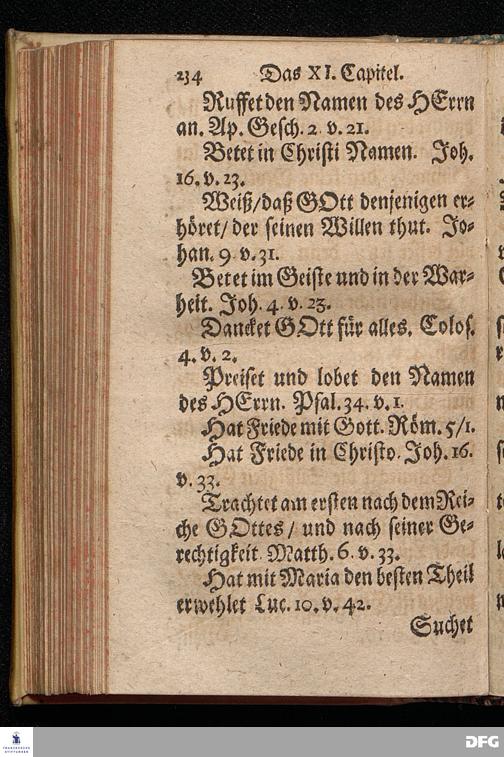 234 Das XI. Capitel.
Ruffet den Namen des HErrn
an. Ap. Gesch. 2. v. 21.
Betet in Christi Namen. Joh.
16. v. 23.
Weiß/ daß GOtt denjenigen er-
höret/ der seinen Willen thut. Jo-
han. 9. v. 31.
Betet im Geiste und in der War-
heit. Joh. 4. v. 23.
Dancket GOtt für alles. Colos.
4. v. 2.
Preiset und lobet den Namen
des HErrn. Psal. 34. v. 1.
Hat Friede mit Gott. Röm. 5/1.
Hat Friede in Christo. Joh. 16.
v. 33.
Trachtet am ersten nach dem Rei-
che GOttes/ und nach seiner Ge-
rechtigkeit. Matth. 6. v. 33.
Hat mit Maria den besten Theil
erwehlet Luc. 10. v. 42.
Suchet
FRANCKESCHE
STIFTUNGEN
DFG